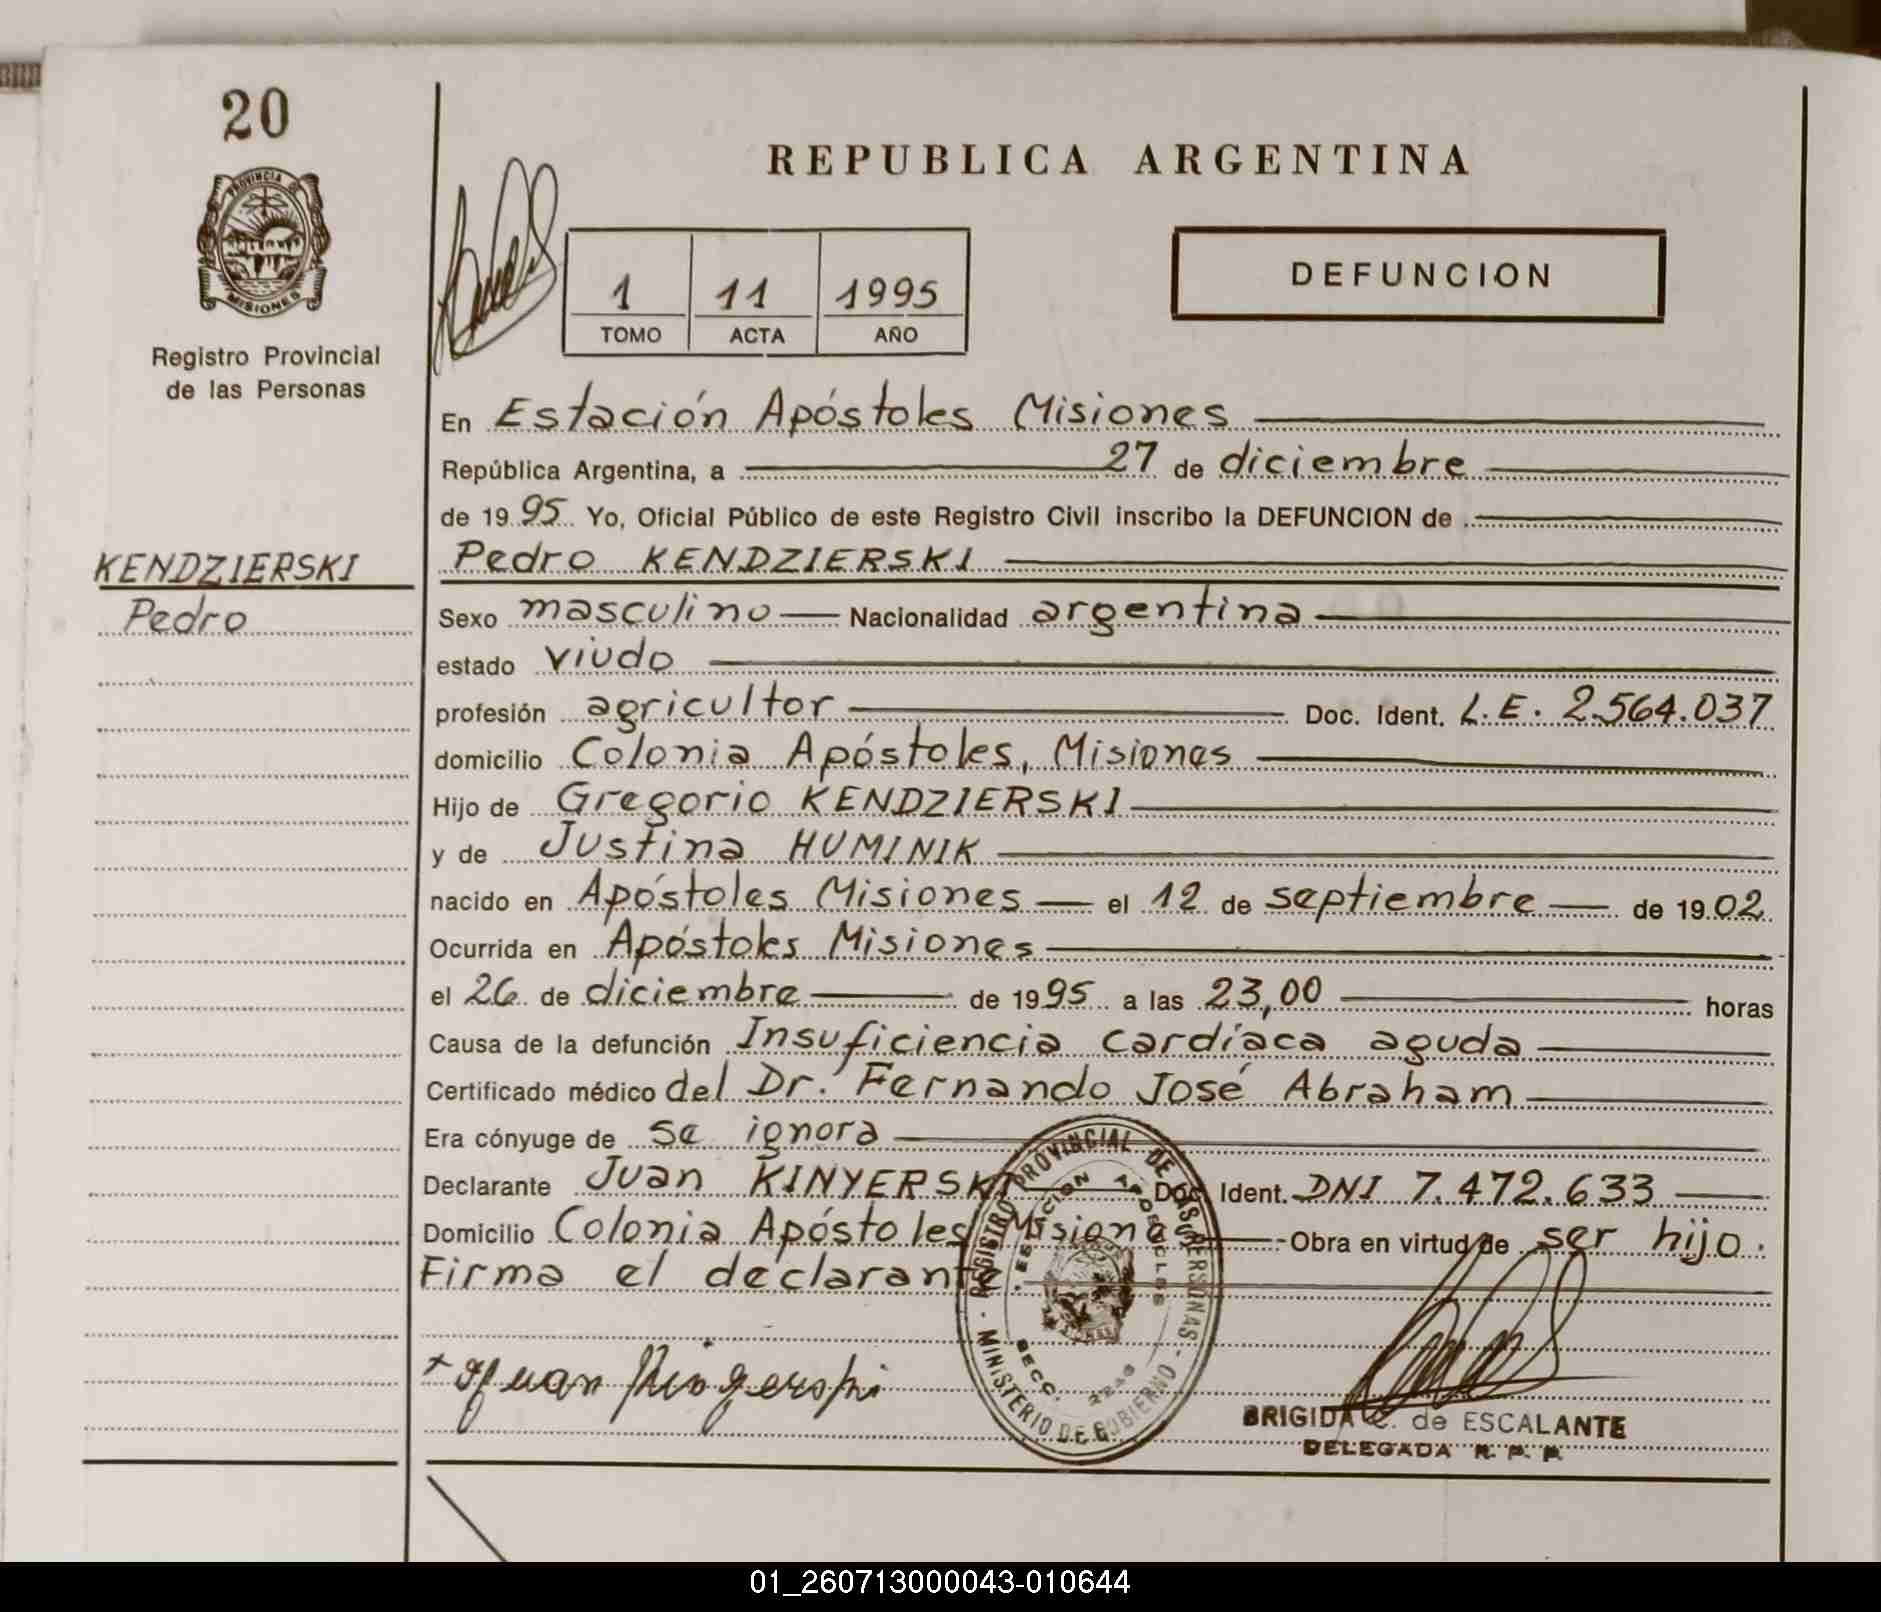 20
REPUBLICA ARGENTINA
PROVINCIA DE
MISIONES
Registro Provincial
de las Personas
1 11 1995
TOMO ACTA AÑO
DEFUNCION
En Estación Apóstoles Misiones
República Argentina, a 27 de diciembre
de 19 95 Yo, Oficial Público de este Registro Civil inscribo la DEFUNCION de
KENDZIERSKI
Pedro
Pedro KENDZIERSKI
Sexo masculino Nacionalidad argentina
estado viudo
profesión agricultor Doc. Ident. L.E. 2.564.037
domicilio Colonia Apóstoles, Misiones
Hijo de Gregorio KENDZIERSKI
y de Justina HUMINIK
nacido en Apóstoles Misiones el 12 de septiembre de 19 02
Ocurrida en Apóstoles Misiones
el 26 de diciembre de 19 95 a las 23,00 horas
Causa de la defunción Insuficiencia cardíaca aguda
Certificado médico del Dr. Fernando José Abraham
Era cónyuge de se ignora
Declarante Juan KINYERSKI Doc. Ident. DNI 7.472.633
Domicilio Colonia Apóstoles Misiones Obra en virtud de ser hijo.
Firma el declarante
REGISTRO PROVINCIAL DE LAS PERSONAS
MINISTERIO DE GOBIERNO
ESTACION APOSTOLES
SECC.
+ Juan Kinyerski
BRIGIDA de ESCALANTE
DELEGADA R. P. P.
01_260713000043-010644